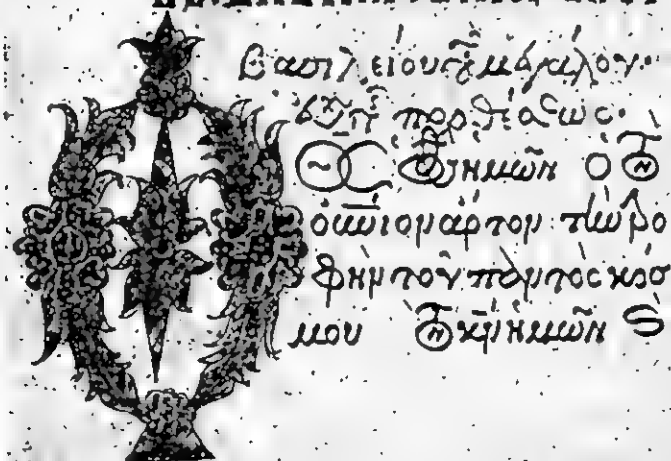 βασιλείου τοῦ μεγάλου·
εὐχὴ τῆς προθέσεως·
ΘC ὁ θς ἡμῶν ὁ τὸν
οὐνιον ἄρτον τὴν τρο
φὴν τοῦ παντὸς κόσ
μου τὸν κν ἡμῶν